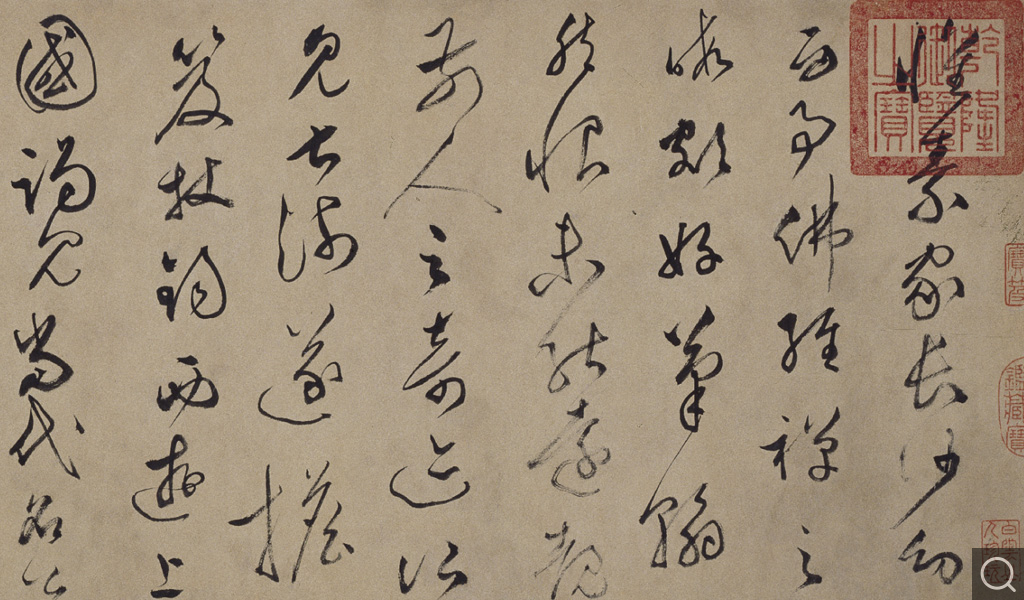 乾隆御覽之寶
懷素家長沙幼
而事佛經禪之
暇頗好筆翰
然恨未能遠覩
前人之奇迹所
見甚淺遂擔
笈杖錫西遊上
國謁見當代名公